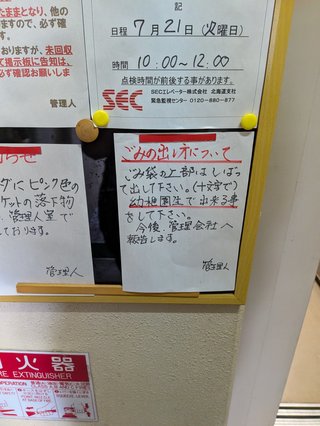 たままとなり、他の
ますので、必ず
おりますが、未回収
て掲示板に告知は、
必ず確認お願いしま
管理人
記
日程 7月21日(火曜日)
時間 10:00~12:00
点検時間が前後する事があります。
SEC
SECエレベーター株式会社 北海道支社
緊急監視センター 0120-880-877
らせ
ダにピンク色の
ケットの落下物
管理人室で
ております。
管理人
ごみの出し方について
ごみ袋の上部はしばっ
て出して下さい。(十文字で)
幼稚園生で出来る事
をして下さい。
今後、管理会社へ
報告します。
管理人
火器
RE EXTINGUISHER